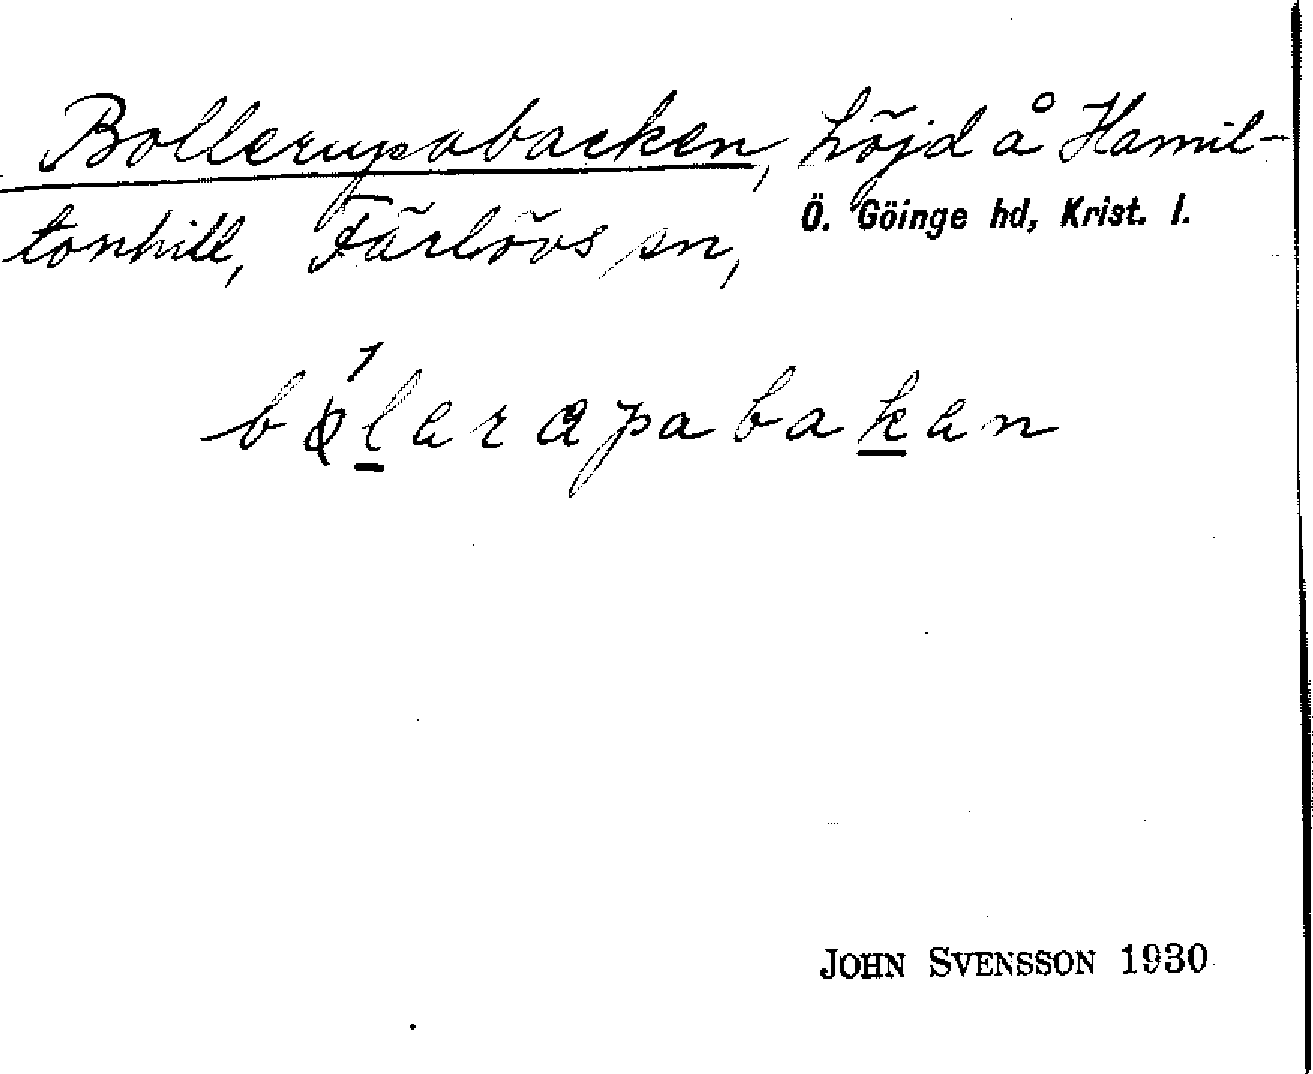 Bollerupabacken, höjd å Hamil-
tonhill, Färlövs sn, Ö. Göinge hd, Krist. l.
bǫ́larapabakan
JOHN SVENSSON 1930